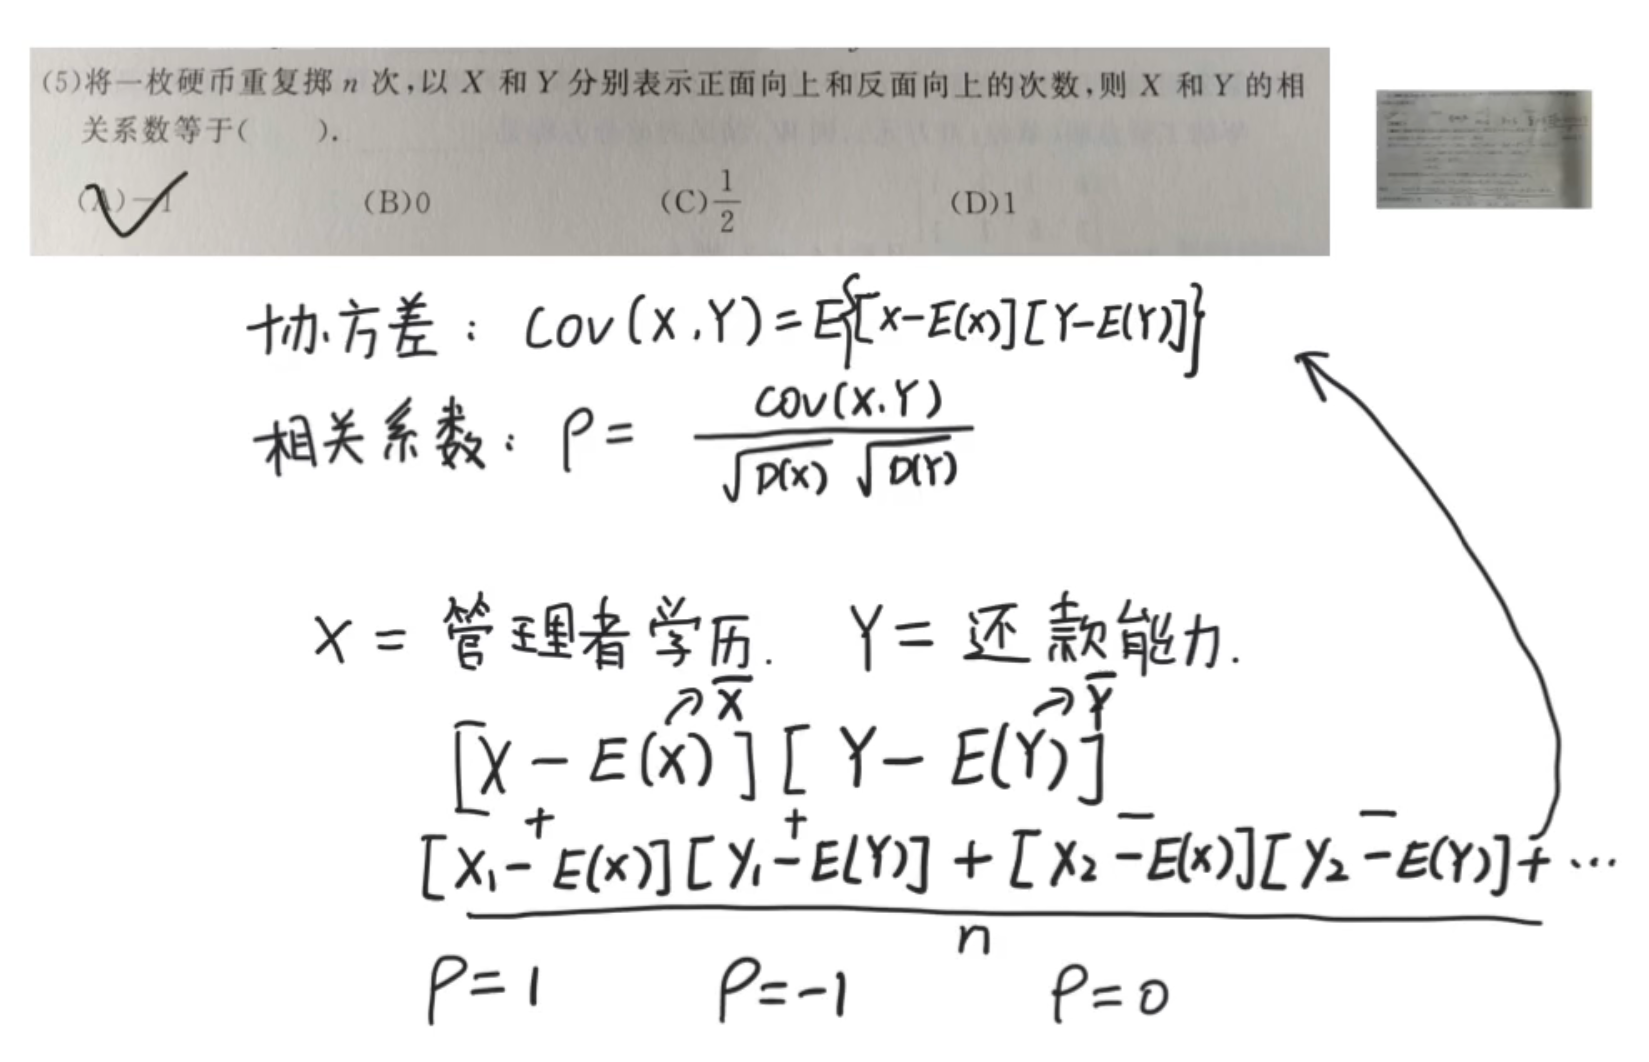 (5)将一枚硬币重复掷 n 次,以 X 和 Y 分别表示正面向上和反面向上的次数,则 X 和 Y 的相
关系数等于(  ).
(A)-1 (B)0 (C)1/2 (D)1
协方差: Cov(X,Y)=E{[X-E(X)][Y-E(Y)]}
相关系数: ρ= Cov(X,Y)/√D(X) √D(Y)
X = 管理者学历. Y = 还款能力.
X̄ Ȳ
[X - E(X)][Y - E(Y)]
+ + - -
[X₁ - E(X)][Y₁ - E(Y)] + [X₂ - E(X)][Y₂ - E(Y)] + ...
n
ρ=1 ρ=-1 ρ=0